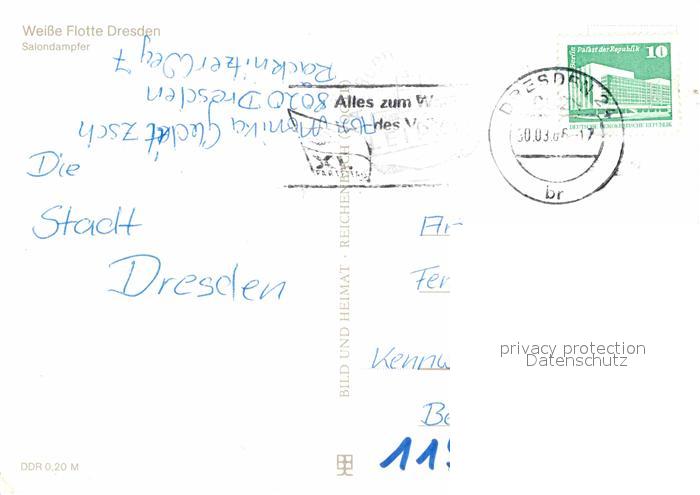 Weiße Flotte Dresden
Salondampfer
Racknitzer Weg 7
8020 Dresden
Abs. Monika
Alles zum W
des V
XI.
PARTEITAG
Berlin Palast der Republik 10
DEUTSCHE DEMOKRATISCHE REPUBLIK
DRESDEN 24
30.03.86-17
br
Die
Stadt
Dresden
BILD UND HEIMAT · REICHENBACH
Fer
Kennw
Be
11
privacy protection
Datenschutz
DDR 0,20 M